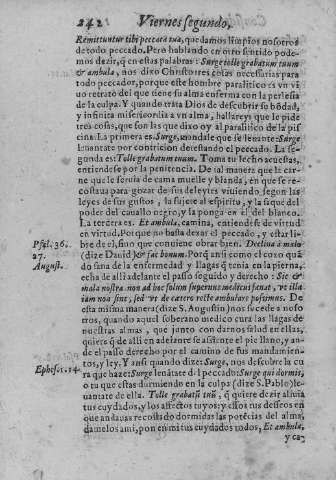 242 Viernes segundo,
Remittuntur tibi peccata tua, quedamos limpios nosotros
de todo peccado. Pero hablando en otro sentido pode-
mos dezir, q̃ en estas palabras: Surge tolle grabatum tuum
& ambula, nos dixo Christo tres cosas necessarias para
todo peccador, porque este hombre paralitico es vn vi
uo retrato del que tiene su alma enferma con la perlesia
de la culpa. Y quando trata Dios de descubrir su bõdad,
y infinita misericordia a vn alma, hallareys que le pide
tres cosas, que son las que dixo oy al paralitico de la pis
cina. La primera es. Surge, mondale que se leuante: Surge
leuantate por contricion detestando el peccado. La se-
gunda es: Tolle grabatum tuum. Toma tu lecho acuestas,
entiendese por la penitencia. De tal manera que la car-
ne que le seruia de cama muelle y blanda, en que se re-
costaua para gozar de sus deleytes viuiendo, segun las
leyes de sus gustos, la sujete al espiritu, y la saque del
poder del cauallo negro, y la ponga en el del blanco.
La tercera es. Et ambula, camina, entiendese de virtud
en virtud. Porque no basta dexar el peccado, y estar li-
Psal. 36. bre de el, sino que conuiene obrar bien. Declina a malo
27. (dize Dauid) & fac bonum. Porq̃ ansi como el coxo quã
August. do sana de la enfermedad y llagas q̃ tenia en la pierna,
echa de alli adelante el passo seguido y derecho: Sic &
mala nostra non ad hoc solum superius medicus sanat, vt illa
iam non sint, sed vt de cætero recte ambulare possimus. De
esta misma manera (dize S. Augustin) nos sucede a noso
tros, quando aquel soberano medico cura las llagas de
nuestras almas, que junto con darnos salud en ellas,
quiere q̃ de alli en adelante se assiente el pie llano, y an-
de el passo derecho por el camino de sus mandamien-
tos, y ley. Y ansi quando dize: Surge, nos descubre la cu
Ephes. 5. 14. ra que haze: Surge leuãtate del peccado: Surge qui dormis,
o tu que estas durmiendo en la culpa (dize S. Pablo) le-
uantate de ella. Tolle grabatũ tuũ, q̃ quiere dezir aliuia
tus cuydados, y los affectos tuyos: y essos tus desseos en
que andauas recostado dormidas las potẽcias del alma,
damelos ami, pon en mi tus cuydados todos, Et ambula,
y ca-